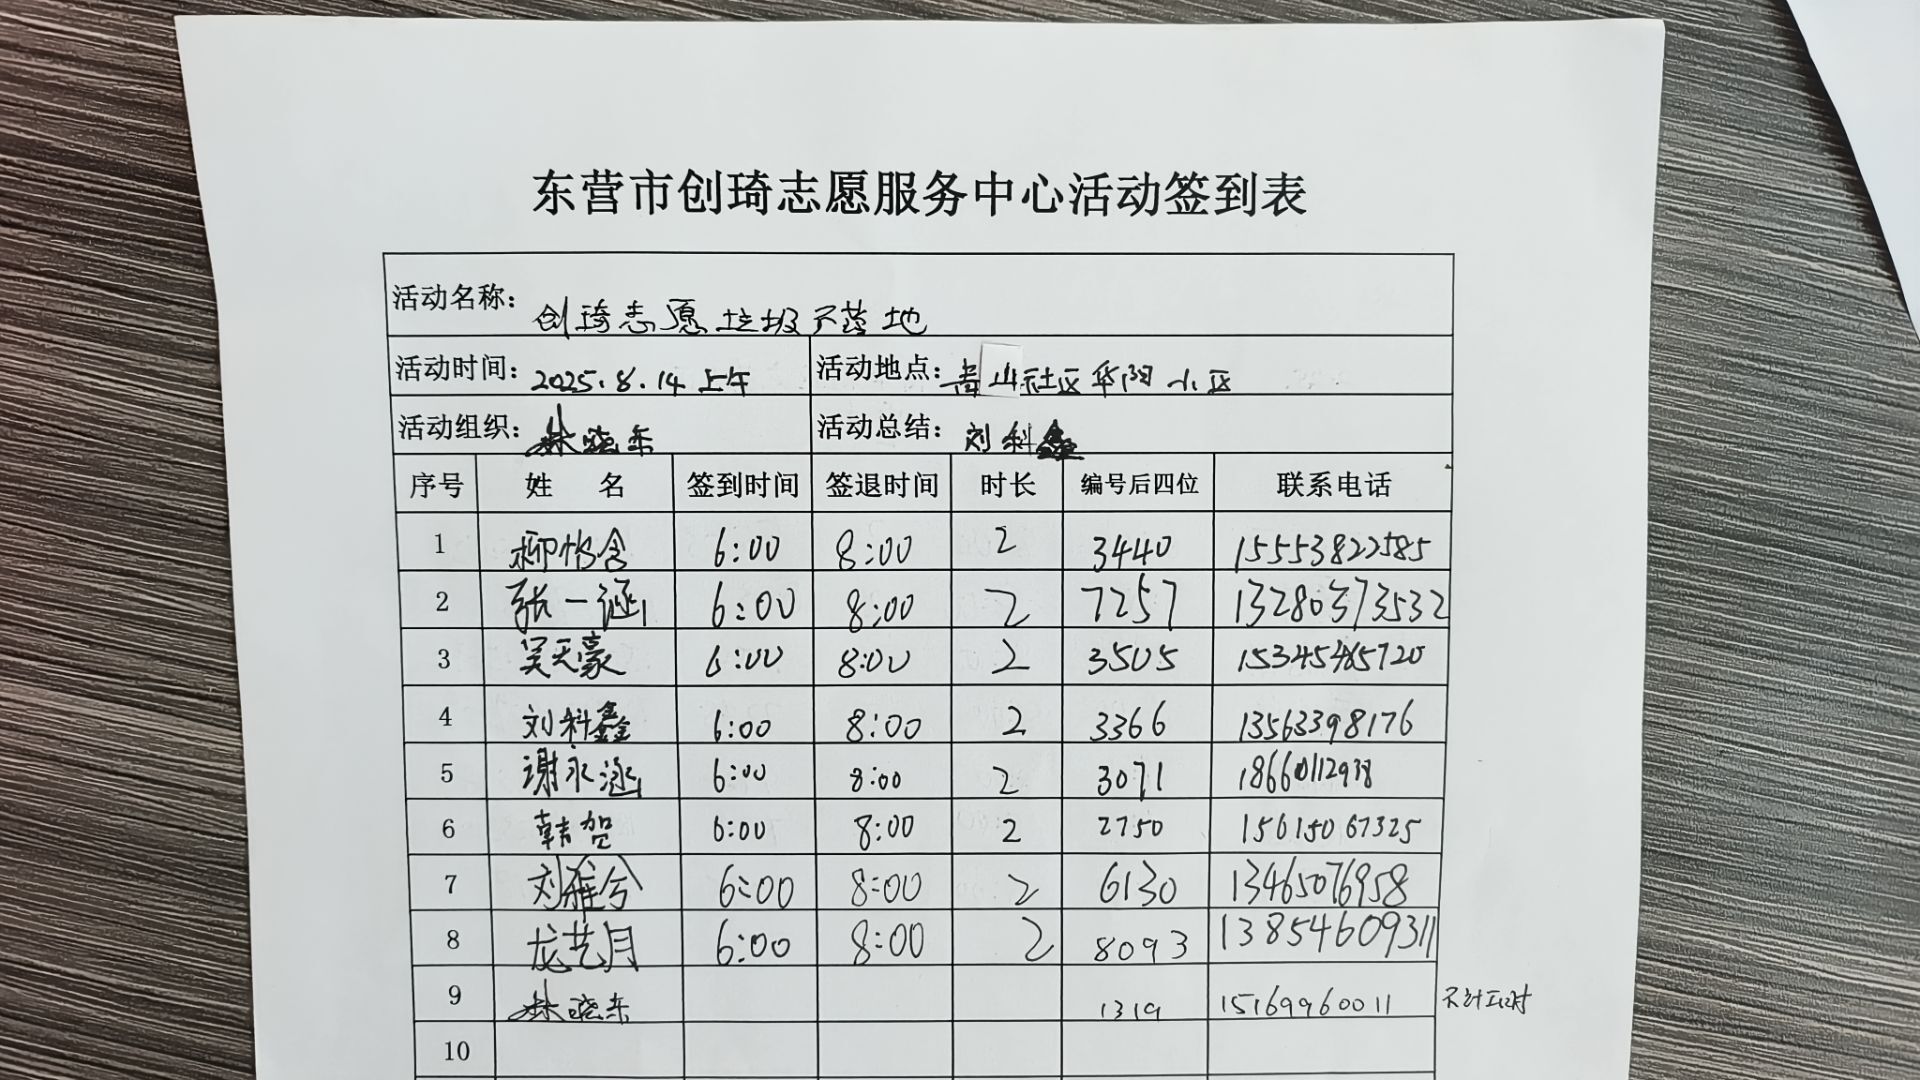 东营市创琦志愿服务中心活动签到表
活动名称: 创琦志愿垃圾不落地
活动时间: 2025.8.14 上午 活动地点: 青山社区华阳小区
活动组织: 林晓东 活动总结: 刘科鑫
序号 姓 名 签到时间 签退时间 时长 编号后四位 联系电话
1 柳怡含 6:00 8:00 2 3440 15553822585
2 张一涵 6:00 8:00 2 7257 13280373532
3 吴天豪 6:00 8:00 2 3505 15345465720
4 刘科鑫 6:00 8:00 2 3366 13563398176
5 谢永涵 6:00 8:00 2 3071 18660112938
6 韩贺 6:00 8:00 2 2750 15615067325
7 刘雅兮 6:00 8:00 2 6130 13465076958
8 龙艺月 6:00 8:00 2 8093 13854609311
9 林晓东 1319 15169960011 不计工时
10